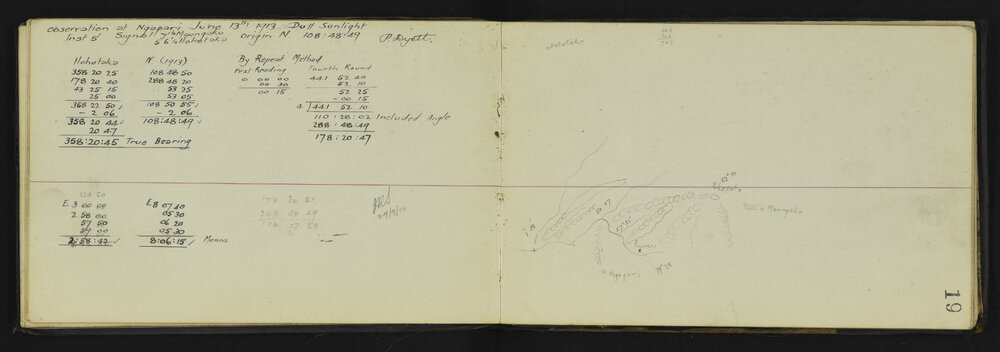 Observation at Ngapari June 13th 1913 Dull Sunlight
Inst 5 Signal 7 1/2 Maungaku Origin N 108:48:49 P Dyett.
5' 6" 1/2 Hohotaka
Hohotaka N (1913) By Repeat Method
First Reading Fourth Round
358 20 25 108 48 50 0 00 00 441 52 40
178 20 40 288 48 20 00 30 52 10
43 25 15 53 25 00 15 52 25
25 00 53 05 - 00 15
358 22 50 108 50 55 4 441 52 10
- 2 06 - 2 06 110 : 28 : 02 Included Angle
358 20 44 108:48:49 288 : 48:49
20 47 178 : 20 : 47
358:20:45 True Bearing
134 50
E 3 00 00 E8 07 40 178 20 51
2 58 00 05 30 288 48 49
57 50 06 20 110 27 58
59 00 05 30
2:58:42 8:06:15 Means
Hohotaka
River
Ngapari
19